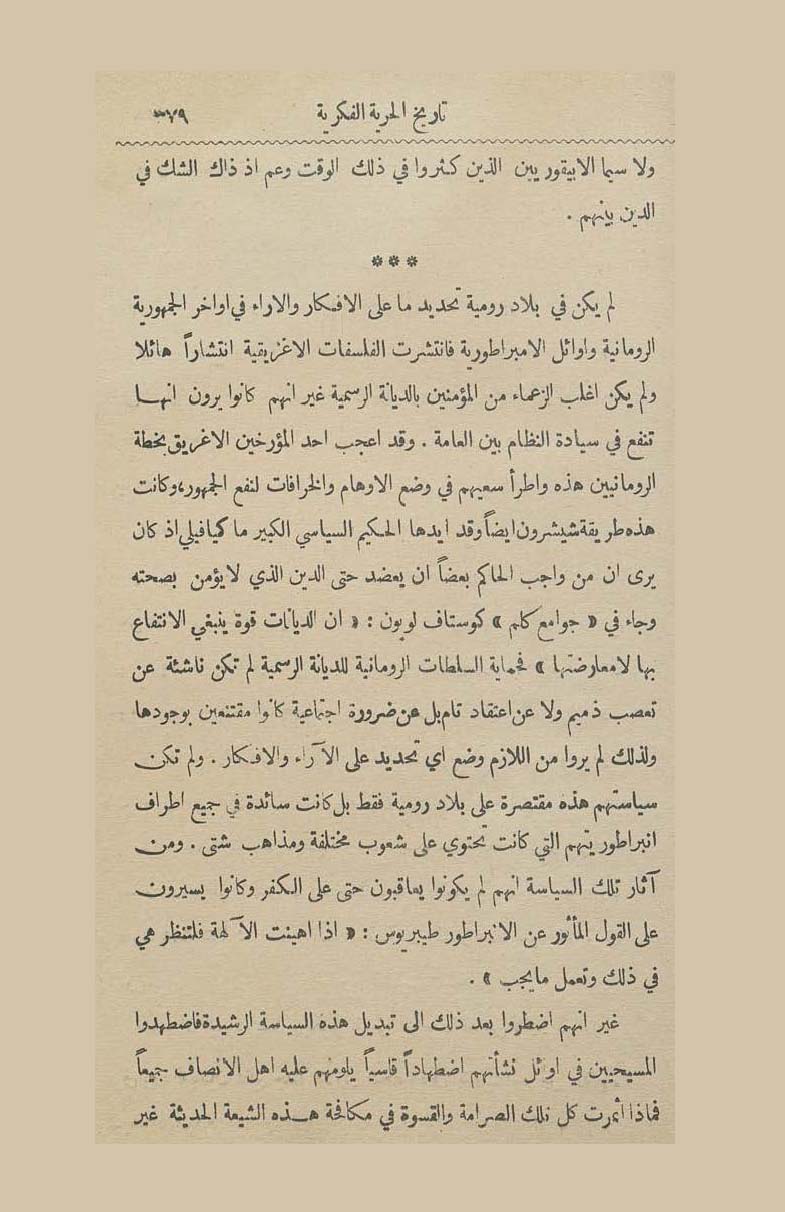 تاريخ الحرية الفكرية ٣٧٩
ولا سيما الابيقوريين الذين كثروا في ذلك الوقت وعم اذ ذاك الشك في
الدين بينهم .
* * *
لم يكن في بلاد رومية تحديد ما على الافكار والاراء في اواخر الجمهورية
الرومانية واوائل الامبراطورية فانتشرت الفلسفات الاغريقية انتشاراً هائلا
ولم يكن اغلب الزعماء من المؤمنين بالديانة الرسمية غير انهم كانوا يرون انها
تنفع في سيادة النظام بين العامة . وقد اعجب احد المؤرخين الاغريق بخطة
الرومانيين هذه واطرأ سعيهم في وضع الاوهام والخرافات لنفع الجمهور، وكانت
هذه طريقة شيشرون ايضاً وقد ايدها الحكيم السياسي الكبير ماكيافيلي اذ كان
يرى ان من واجب الحاكم بعضاً ان يعضد حتى الدين الذي لا يؤمن بصحته
وجاء في « جوامع كلم » كوستاف لوبون : « ان الديانات قوة ينبغي الانتفاع
بها لا معارضتها » فحماية السلطات الرومانية للديانة الرسمية لم تكن ناشئة عن
تعصب ذميم ولا عن اعتقاد تام بل عن ضرورة اجتماعية كانوا مقتنعين بوجودها
ولذلك لم يروا من اللازم وضع اي تحديد على الآراء والافكار . ولم تكن
سياستهم هذه مقتصرة على بلاد رومية فقط بل كانت سائدة في جميع اطراف
انبراطوريتهم التي كانت تحتوي على شعوب مختلفة ومذاهب شتى . ومن
آثار تلك السياسة انهم لم يكونوا يعاقبون حتى على الكفر وكانوا يسيرون
على القول المأثور عن الانبراطور طيبريوس : « اذا اهينت الآلهة فلتنظر هي
في ذلك وتعمل ما يجب » .
غير انهم اضطروا بعد ذلك الى تبديل هذه السياسة الرشيدة فاضطهدوا
المسيحيين في اوئل نشأتهم اضطهاداً قاسياً يلومهم عليه اهل الانصاف جميعاً
فماذا أثمرت كل تلك الصرامة والقسوة في مكافحة هذه الشيعة الحديثة غير